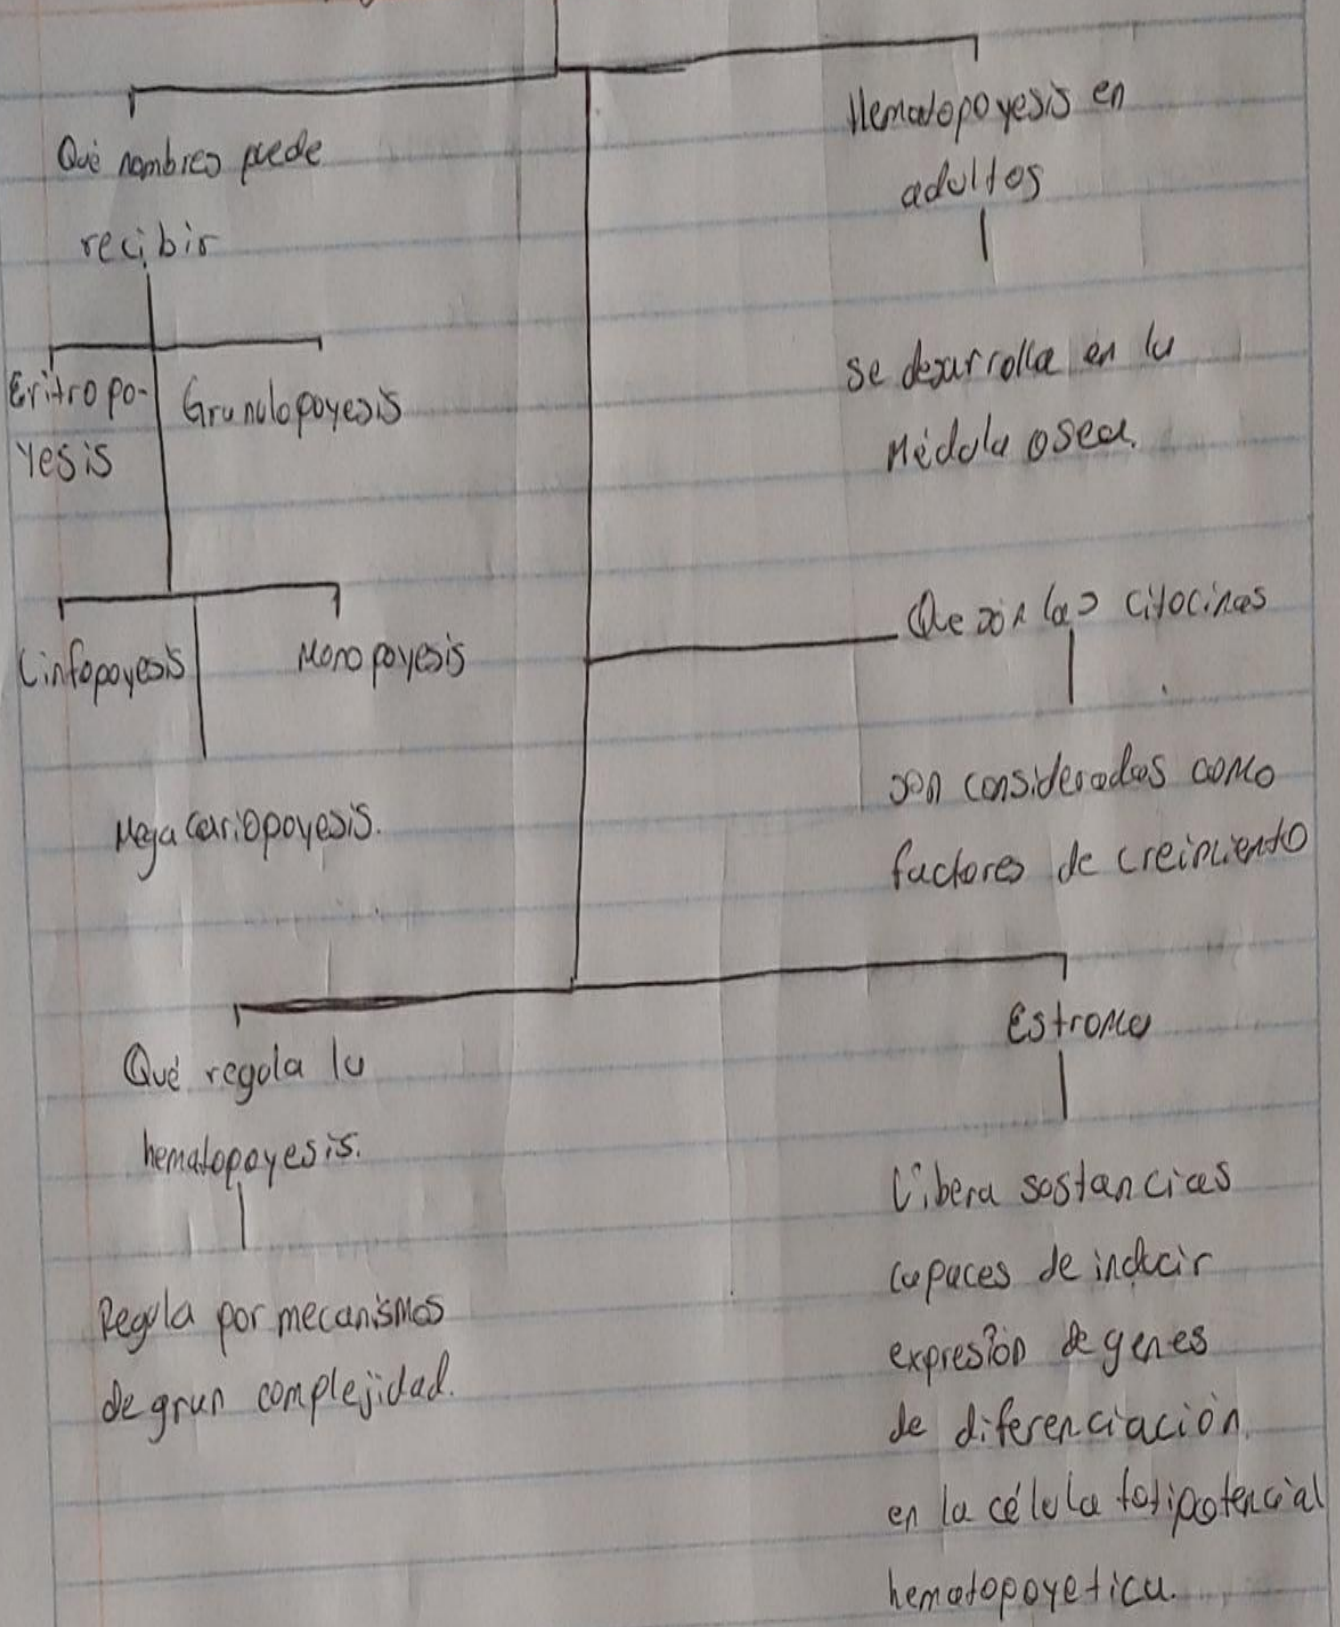 Qué nombres puede
recibir
Eritropo-
yesis
Granulopoyesis
Linfopoyesis
Monopoyesis
Megacariopoyesis.
Hematopoyesis en
adultos
se desarrolla en la
Médula osea.
Que son las citocinas
son consideradas como
factores de creimiento
Qué regola la
hematopoyesis.
Regula por mecanismos
de gran complejidad.
Estroma
Libera sostancias
capaces de inducir
expresión de genes
de diferenciación
en la célula totipotencial
hematopoyetica.